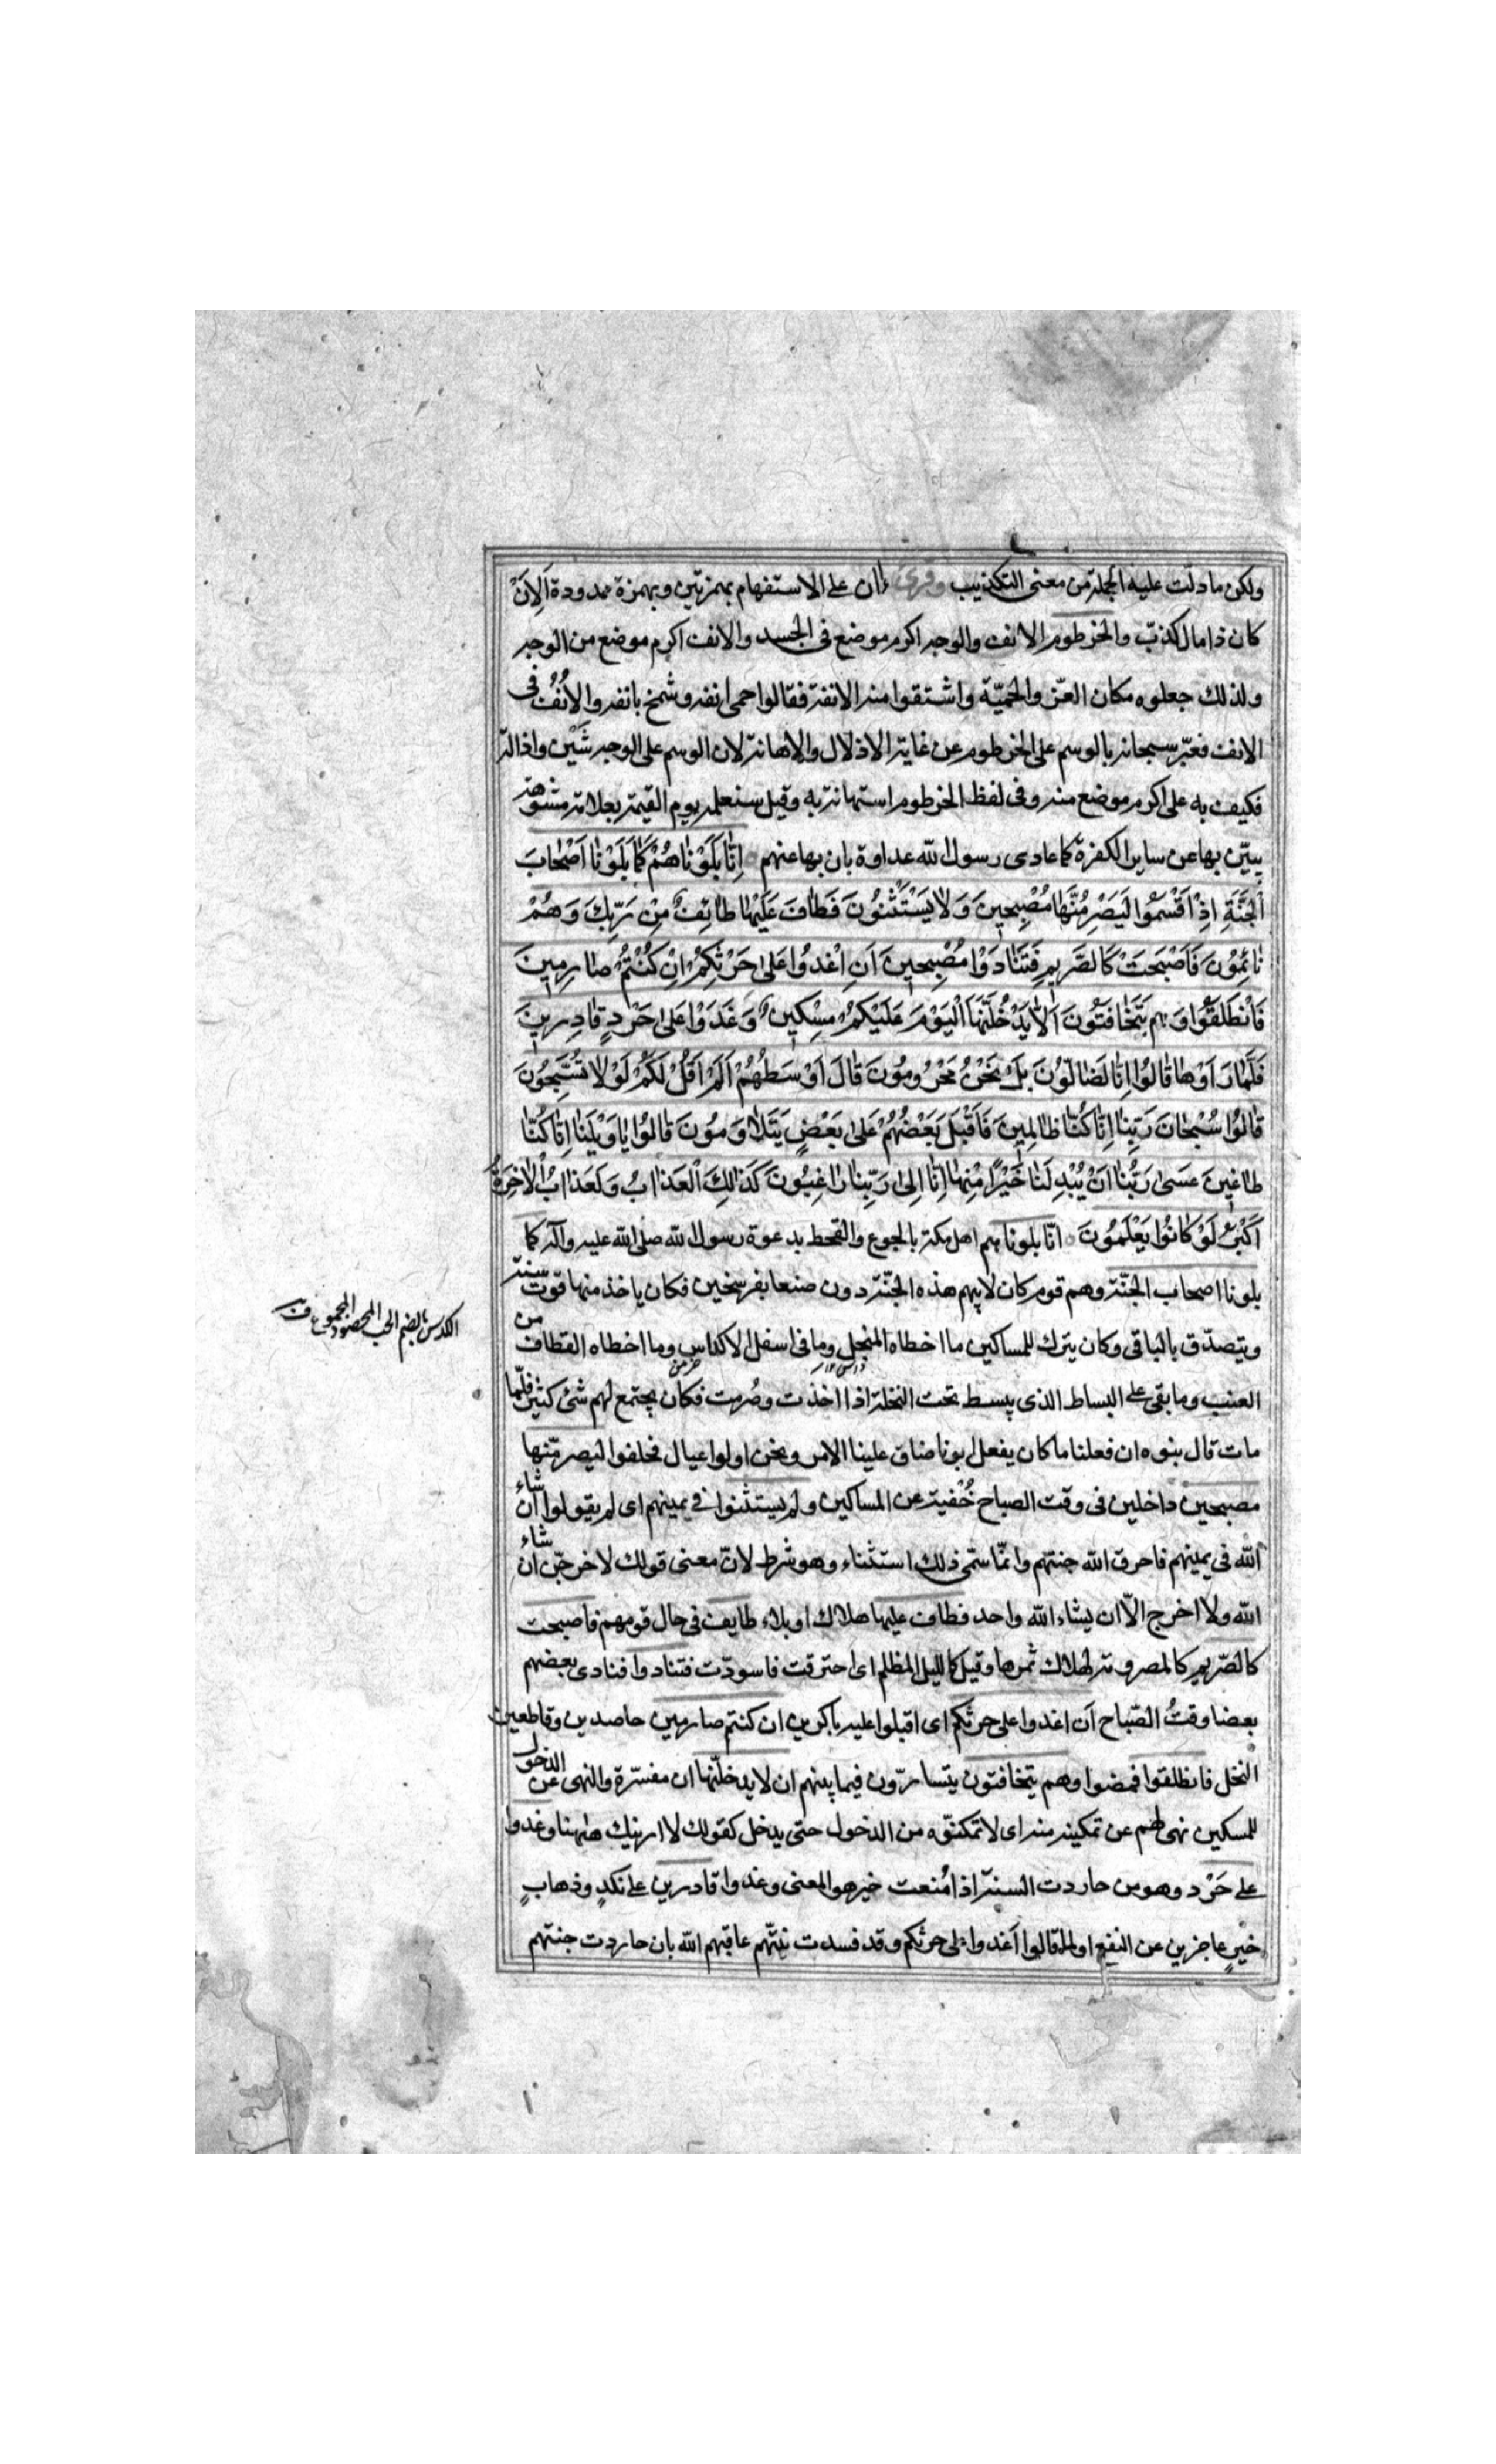 ولكن ما دلّت عليه الجملة من معنى التكذيب وقرئ ءان على الاستفهام بهمزتين وبهمزة ممدودة اَلِاَنْ
كان ذا مال كذّب والخرطوم الانف والوجه اكرم موضع فى الجسد والانف اكرم موضع من الوجه
ولذلك جعلوه مكان العزّ والحميّة واشتقوا منه الانفة فقالوا حمى انفه وشمخ بانفه والاُنُف فى
الانف فعبّر سبحانه بالوسم على الخرطوم عن غاية الاذلال والاهانة لان الوسم على الوجه شَيْن واذالة
فكيف به على اكرم موضع منه وفى لفظ الخرطوم استهانة به وقيل سنعلمه يوم القيمة بعلامة مشوهة
يبيّن بها عن ساير الكفرة كما عادى رسول الله عداوة بان بها عنهم اِنّا بَلَوْناهُمْ كَما بَلَوْنا اَصْحابَ
اْلجَنَّةِ اِذْ اَقْسَمُوا لَيَصْرِمُنَّها مُصْبِحينَ وَلا يَسْتَثْنُونَ فَطافَ عَلَيْها طائِفٌ مِنْ رَبِّكَ وَهُمْ
نائِمُونَ فَاَصْبَحَتْ كَالصَّريمِ فَتَنادَوْا مُصْبِحينَ اَنِ اغْدُوا عَلى حَرْثِكُمْ اِنْ كُنْتُمْ صارِمينَ
فَانْطَلَقُوا وَهم يَتَخافَتُونَ اَلّا يَدْخُلَنَّهَا الْيَوْمَ عَلَيْكُمْ مِسْكينٌ وَغَدَوْا عَلى حَرْدٍ قادِرينَ
فَلَمّا رَاَوْها قالُوا اِنّا لَضالُّونَ بَلْ نَحْنُ مَحْرُومُونَ قالَ اَوْسَطُهُمْ اَلَمْ اَقُلْ لَكُمْ لَوْلا تُسَبِّحُونَ
قالُوا سُبْحانَ رَبِّنا اِنّا كُنّا ظالِمينَ فَاَقْبَلَ بَعْضُهُمْ عَلى بَعْضٍ يَتَلاوَمُونَ قالُوا يا وَيْلَنا اِنّا كُنّا
طاغينَ عَسى رَبُّنا اَنْ يُبْدِلَنا خَيْرًا مِنْها اِنّا اِلى رَبِّنا راغِبُونَ كَذلِكَ الْعَذابُ وَلَعَذابُ الْاخِرَةِ
اَكْبَرُ لَوْ كانُوا يَعْلَمُونَ انّا بلوناهم اهل مكة بالجوع والقحط بدعوة رسول الله صلى الله عليه وآله كما
بلونا اصحاب الجنّة وهم قوم كان لابيهم هذه الجنّة دون صنعا بفرسخين فكان ياخذ منها قوت سنة
ويتصدّق بالباقى وكان يترك للمساكين ما اخطاه المنجل وما فى اسفل الاكداس وما اخطاه القطاف من
الكدس بالضم الحب المحصود المجموع
العنب وما بقى على البساط الذى يبسط تحت النخلة اذا اخذت وصُرمت فكان يجتمع لهم شئ كثير فلمّا
مات قال بنوه ان فعلنا ما كان يفعل ابونا ضاق علينا الامر ونحن اولوا عيال فحلفوا ليصرمّنها
مصبحين داخلين فى وقت الصباح خُفْية عن المساكين ولم يستثنوا فى يمينهم اى لم يقولوا ان شاء
الله فى يمينهم فاحرق الله جنتهم وانّما سمّى ذلك استثناء وهو شرط لانّ معنى قولك لاخرجنّ ان شاء
الله ولا اخرج الّا ان يشاء الله واحد فطاف عليها هلاك او بلاء طايف فى حال قومهم فاصبحت
كالصّريم كالمصرومة لهلاك ثمرها وقيل كالليل المظلم اى احترقت فاسودّت فتنادوا فنادى بعضهم
بعضا وقتُ الصّباح اَن اغدوا على حرثكم اى اقبلوا عليه باكرين ان كنتم صارمين حاصدين وقاطعين
النخل فانطلقوا فمضوا وهم يتخافتون يتسارّون فيما بينهم ان لا يدخلنّها ان مفسّرة والنهى عن الدخول
للمسكين نهى لهم عن تمكينه منه اى لا تمكنّوه من الدخول حتى يدخل كقولك لا ارينك هٰهنا وغدوا
على حَرْد وهو من حاردت السنة اذا مُنعت خيرها والمعنى وغدوا قادرين على نكدٍ وذهابِ
خيرٍ عاجزين عن النفع او لما قالوا اَغدوا على حرثكم وقد فسدت نيّتهم عاقبهم الله بان حاردت جنتهم